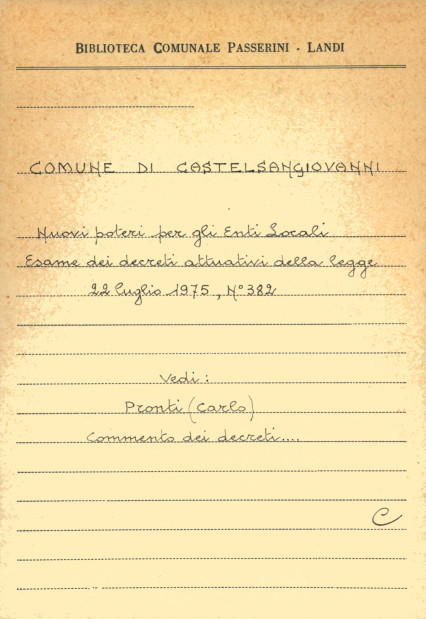 BIBLIOTECA COMUNALE PASSERINI - LANDI
COMUNE DI CASTELSANGIOVANNI
Nuovi poteri per gli Enti Locali
Esame dei decreti attuativi della legge
22 luglio 1975, N° 382
Vedi:
Pronti (Carlo)
Commento dei decreti....
C